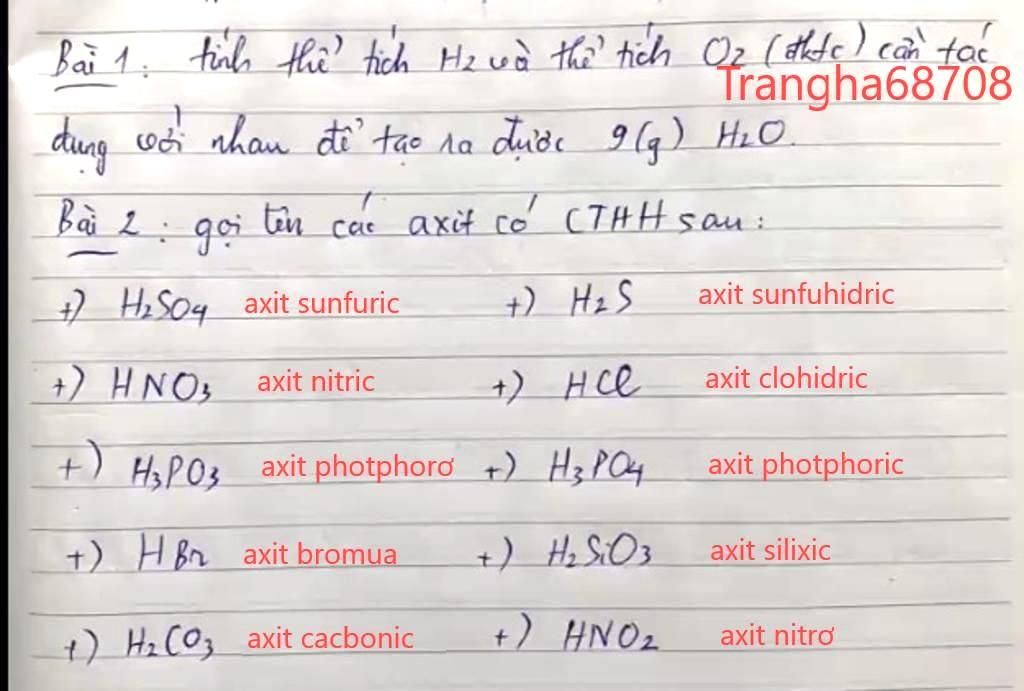 Bài 1: tính thể tích H2 và thể tích O2 (đktc) cần tác
Trangha68708
dụng với nhau để tạo ra được 9(g) H2O.
Bài 2: gọi tên các axit có CTHH sau:
+) H2SO4 axit sunfuric +) H2S axit sunfuhidric
+) HNO3 axit nitric +) HCl axit clohidric
+) H3PO3 axit photphorơ +) H3PO4 axit photphoric
+) HBr axit bromua +) H2SiO3 axit silixic
+) H2CO3 axit cacbonic +) HNO2 axit nitrơ